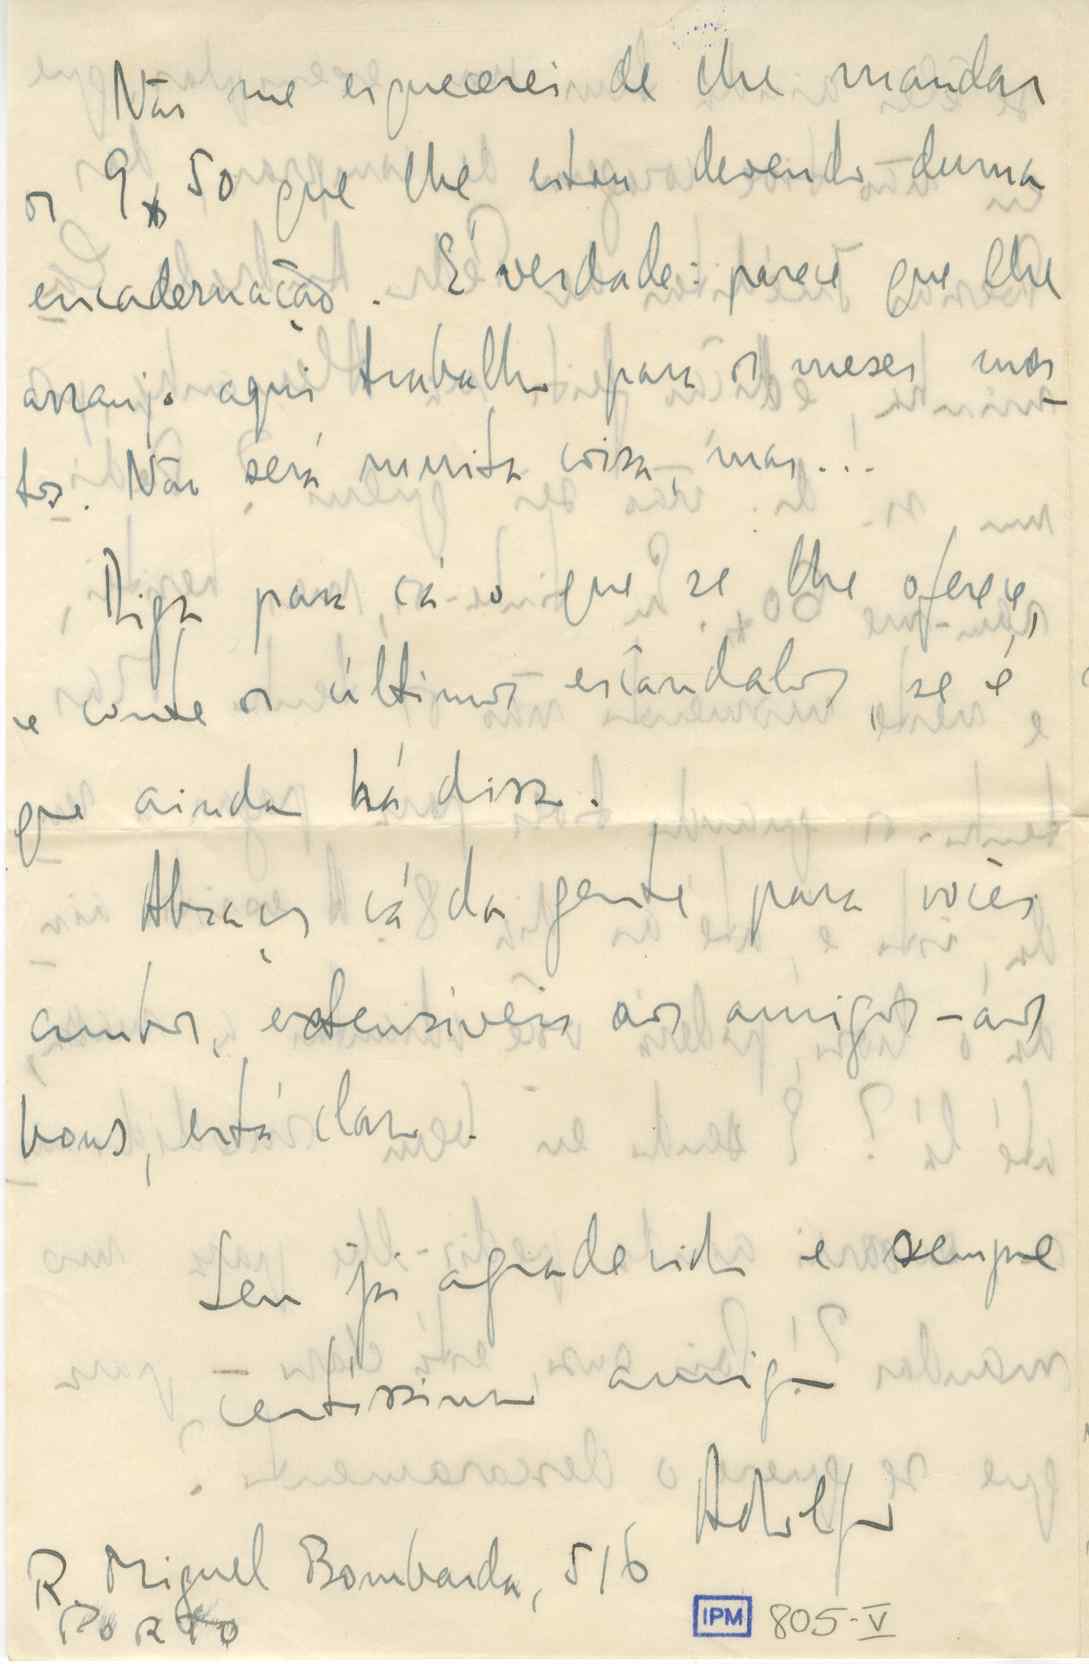 Não me esquecerei de lhe mandar
os 9$50 que lhe estou devendo duma
encadernação. É verdade: parece que lhe
arranjo aqui trabalho para os meses mor-
tos. Não será muita coisa, mas...
Diga para cá o que se lhe oferece,
e conte os últimos escândalos, se é
que ainda há disso.
Abraços cá da gente para vocês
ambos, extensiveis aos amigos - aos
bons, está claro.
Seu já agradecido e sempre
certíssimo amigo
Adolfo
R. Miguel Bombarda, 516
PORTO
IPM 805-V